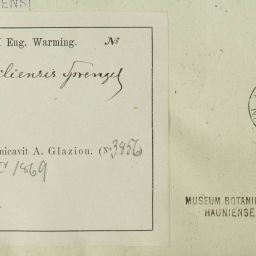 ENSI
Eng. Warming. №
iliensis Sprengel
nicavit A. Glaziou. (№ 3856)
1869
MUSEUM BOTANI
HAUNIENSE